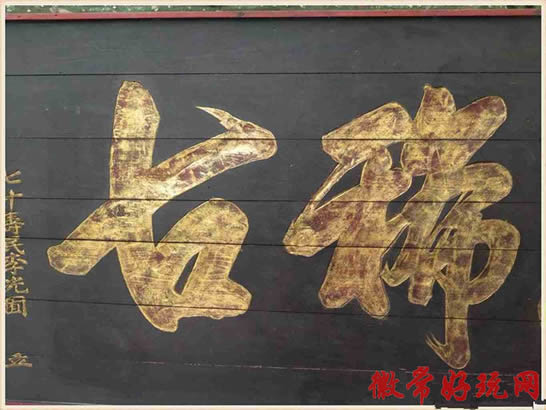 稀古
七十壽民李光 立
徽常好玩网